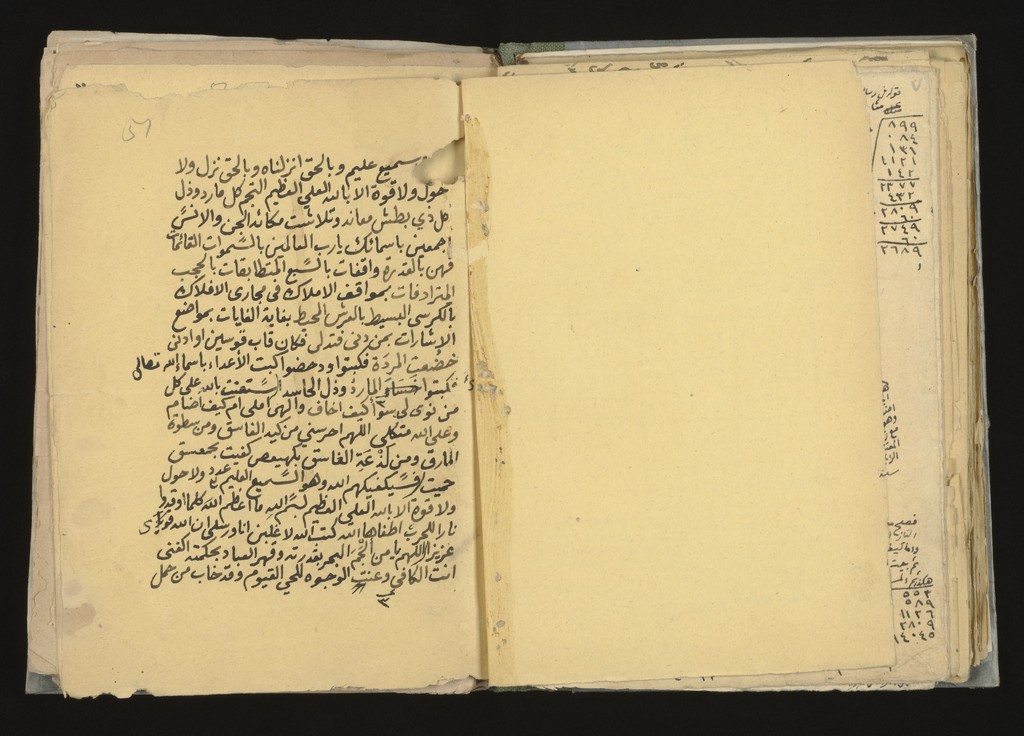 سميع عليم وبالحق انزلناه وبالحق نزل ولا
حول ولا قوة الا بالله العلي العظيم التجم كل مارد وذل
كل ذي بطش معاند وتلاشت مكائد الجن والانس
اجمعين باسمائك يارب العالمين بالسموات القائمات
فهن بالقدرة واقفات بالسبع المتطابقات بالحجب
المترادفات بمواقف الاملاك في مجارى الافلاك
بالكرسي البسيط بالعرش المحيط بغاية الغايات بمواضع
الاشارات بمن دنى فتدلى فكان قاب قوسين او ادنى
خضعت المردة فكبتوا ودحضوا كبت الأعداء باسماء الله تعالى
فكبتوا المارد وذل الحاسد استعنت بالله على كل
من نوى لي سوأ كيف اخاف والهى املى ام كيف اضام
وعلى الله متكلي اللهم احرسني من كيد الفاسق ومن سطوة
المارق ومن لدغة الغاسق بكهيعص كفيت بحمعسق
حميت فسيكفيكهم الله وهو السميع العليم عدد ولا حول
ولا قوة الا بالله العلي العظيم بسم الله ما اعظم الله كلما اوقدوا
نارا للحرب اطفاها الله كتب الله لاغلبن انا ورسلي ان الله قوي
عزيز اللهم يا من الجم البحر بقدرته وقهر العباد بحكمته اكفني
انت الكافي وعنت الوجوه للحي القيوم وقد خاب من حمل
٣
٨٩٩
٢٣٧٧
٤٣٢
٢٨٠٩
٢٧٤٩
٦٠
٢٦٨٩